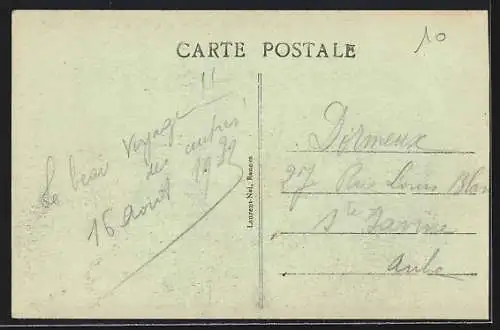 CARTE POSTALE
10
Le beau voyage !!
des autres
16 août 1922
Laurent-Nel, Rennes
Dormeux
27 Rue Louis Blanc
Ste Savine
Aube